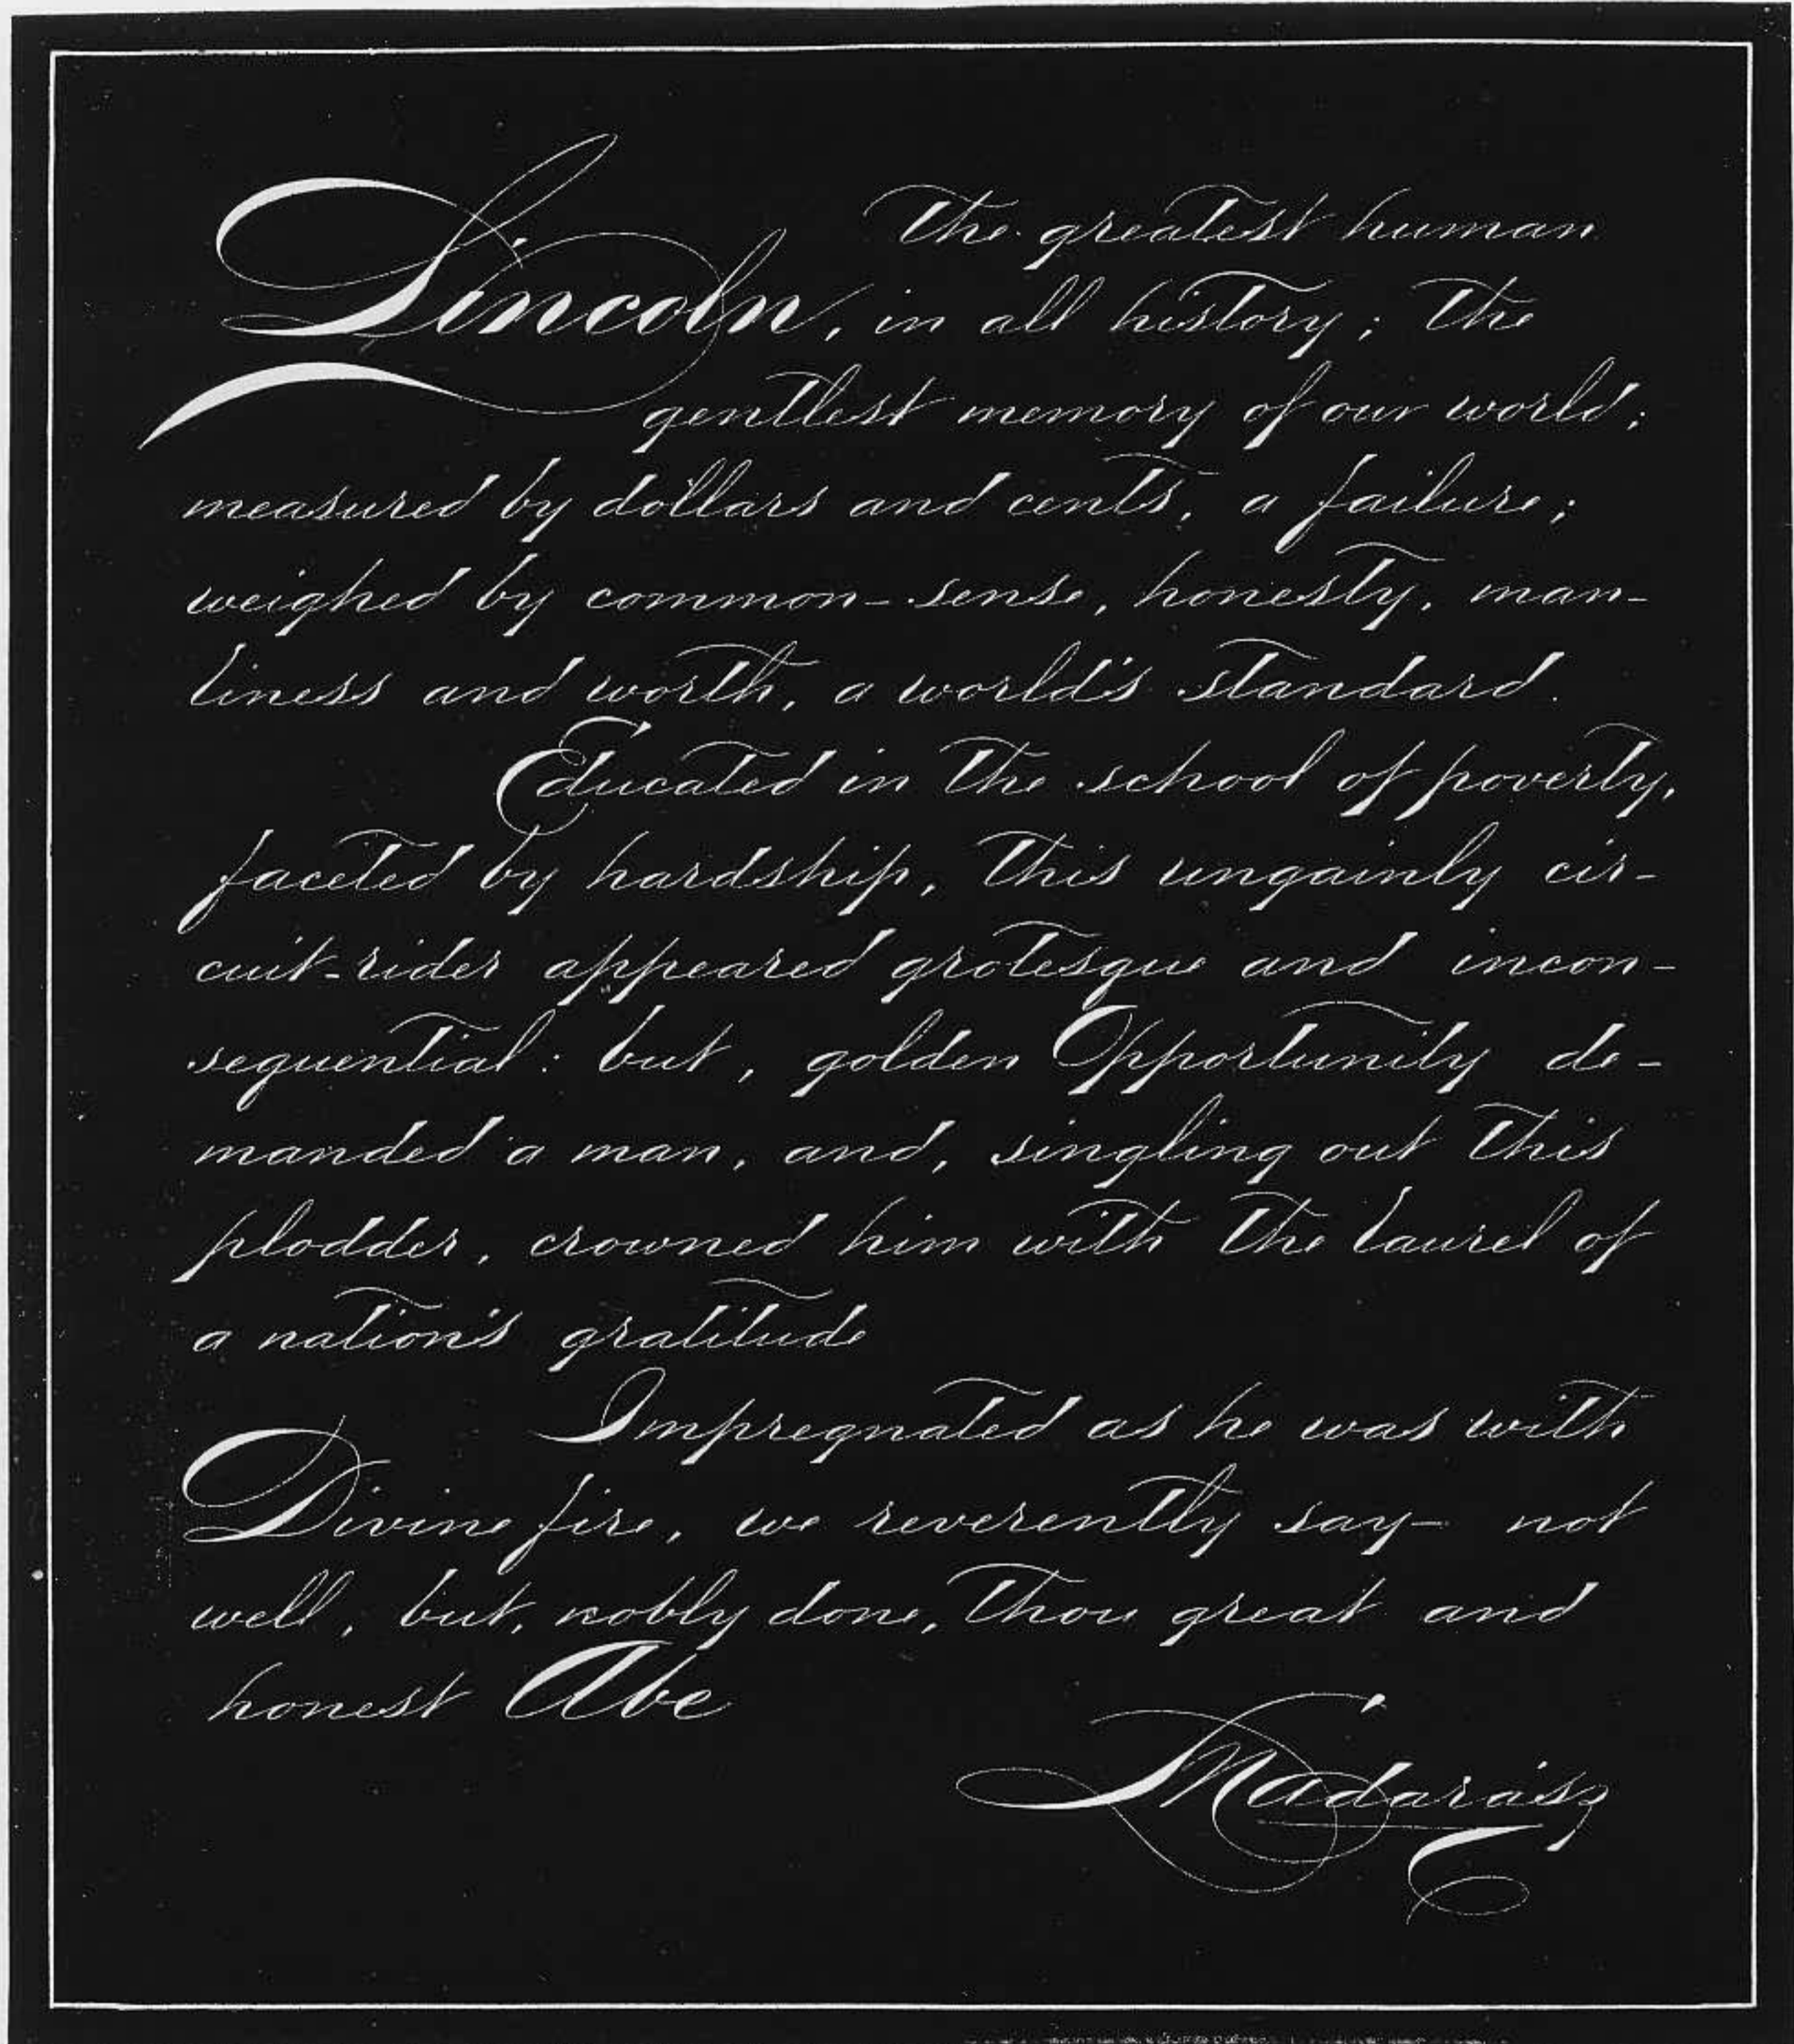 The greatest human
Lincoln, in all history; the
gentlest memory of our world;
measured by dollars and cents, a failure;
weighed by common-sense, honesty, man-
liness and worth, a world's standard.
Educated in the school of poverty,
faceted by hardship, this ungainly cir-
cuit-rider appeared grotesque and incon-
sequential: but, golden Opportunity de-
manded a man, and, singling out this
plodder, crowned him with the laurel of
a nation's gratitude
Impregnated as he was with
Divine fire, we reverently say- not
well, but, nobly done, Thou great and
honest Abe
L Madarász